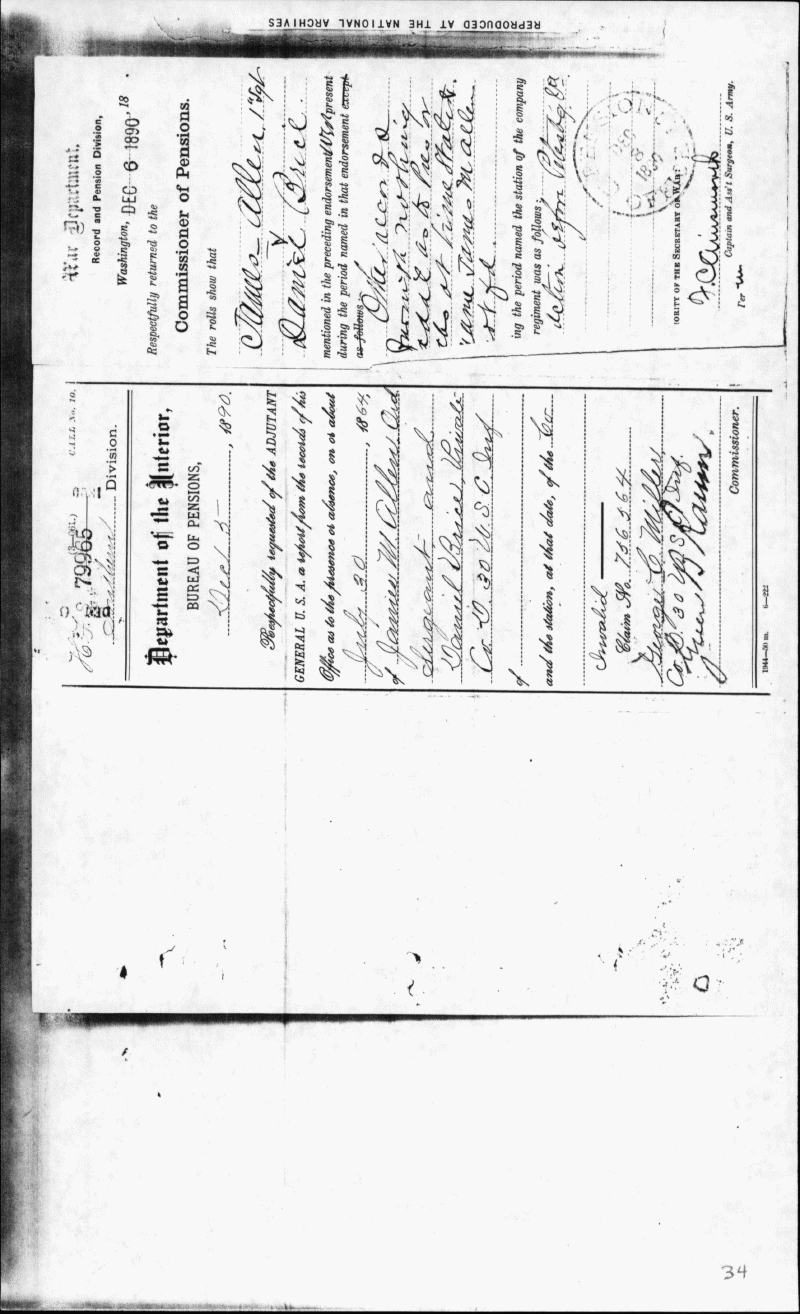 REPRODUCED AT THE NATIONAL ARCHIVES
(3—061.) CALL No. 10.
79965
Division.
Department of the Interior,
BUREAU OF PENSIONS,
Dec 5, 1890.
Respectfully requested of the ADJUTANT
GENERAL U. S. A. a report from the records of his
Office as to the presence or absence, on or about
July 30, 1864,
of James M. Allen
Sergeant and
Daniel Brice Private
Co. D 30 U. S. C Inf
of
and the station, at that date, of the Co
Invalid
Claim No. 756364
George C. Miller
Co. D. 30 U S C Inf.
Green B Raum.
Commissioner.
1944—50 m. 6—222
War Department,
Record and Pension Division,
Washington, DEC 6 1890, 18 .
Respectfully returned to the
Commissioner of Pensions.
The rolls show that
James Allen 1" Sgt
Daniel Brice.
mentioned in the preceding endorsement present
during the period named in that endorsement except
as follows:
Other records
furnish nothing
addl as to Pres or
abs at time stated.
name James M Allen
not fd.
ing the period named the station of the company
regiment was as follows:
before Petersbg Va
PENSION OFFICE
DEC 8 1890
ORITY OF THE SECRETARY OF WAR:
F. C. Ainsworth
Captain and Ass't Surgeon, U. S. Army.
Per
34